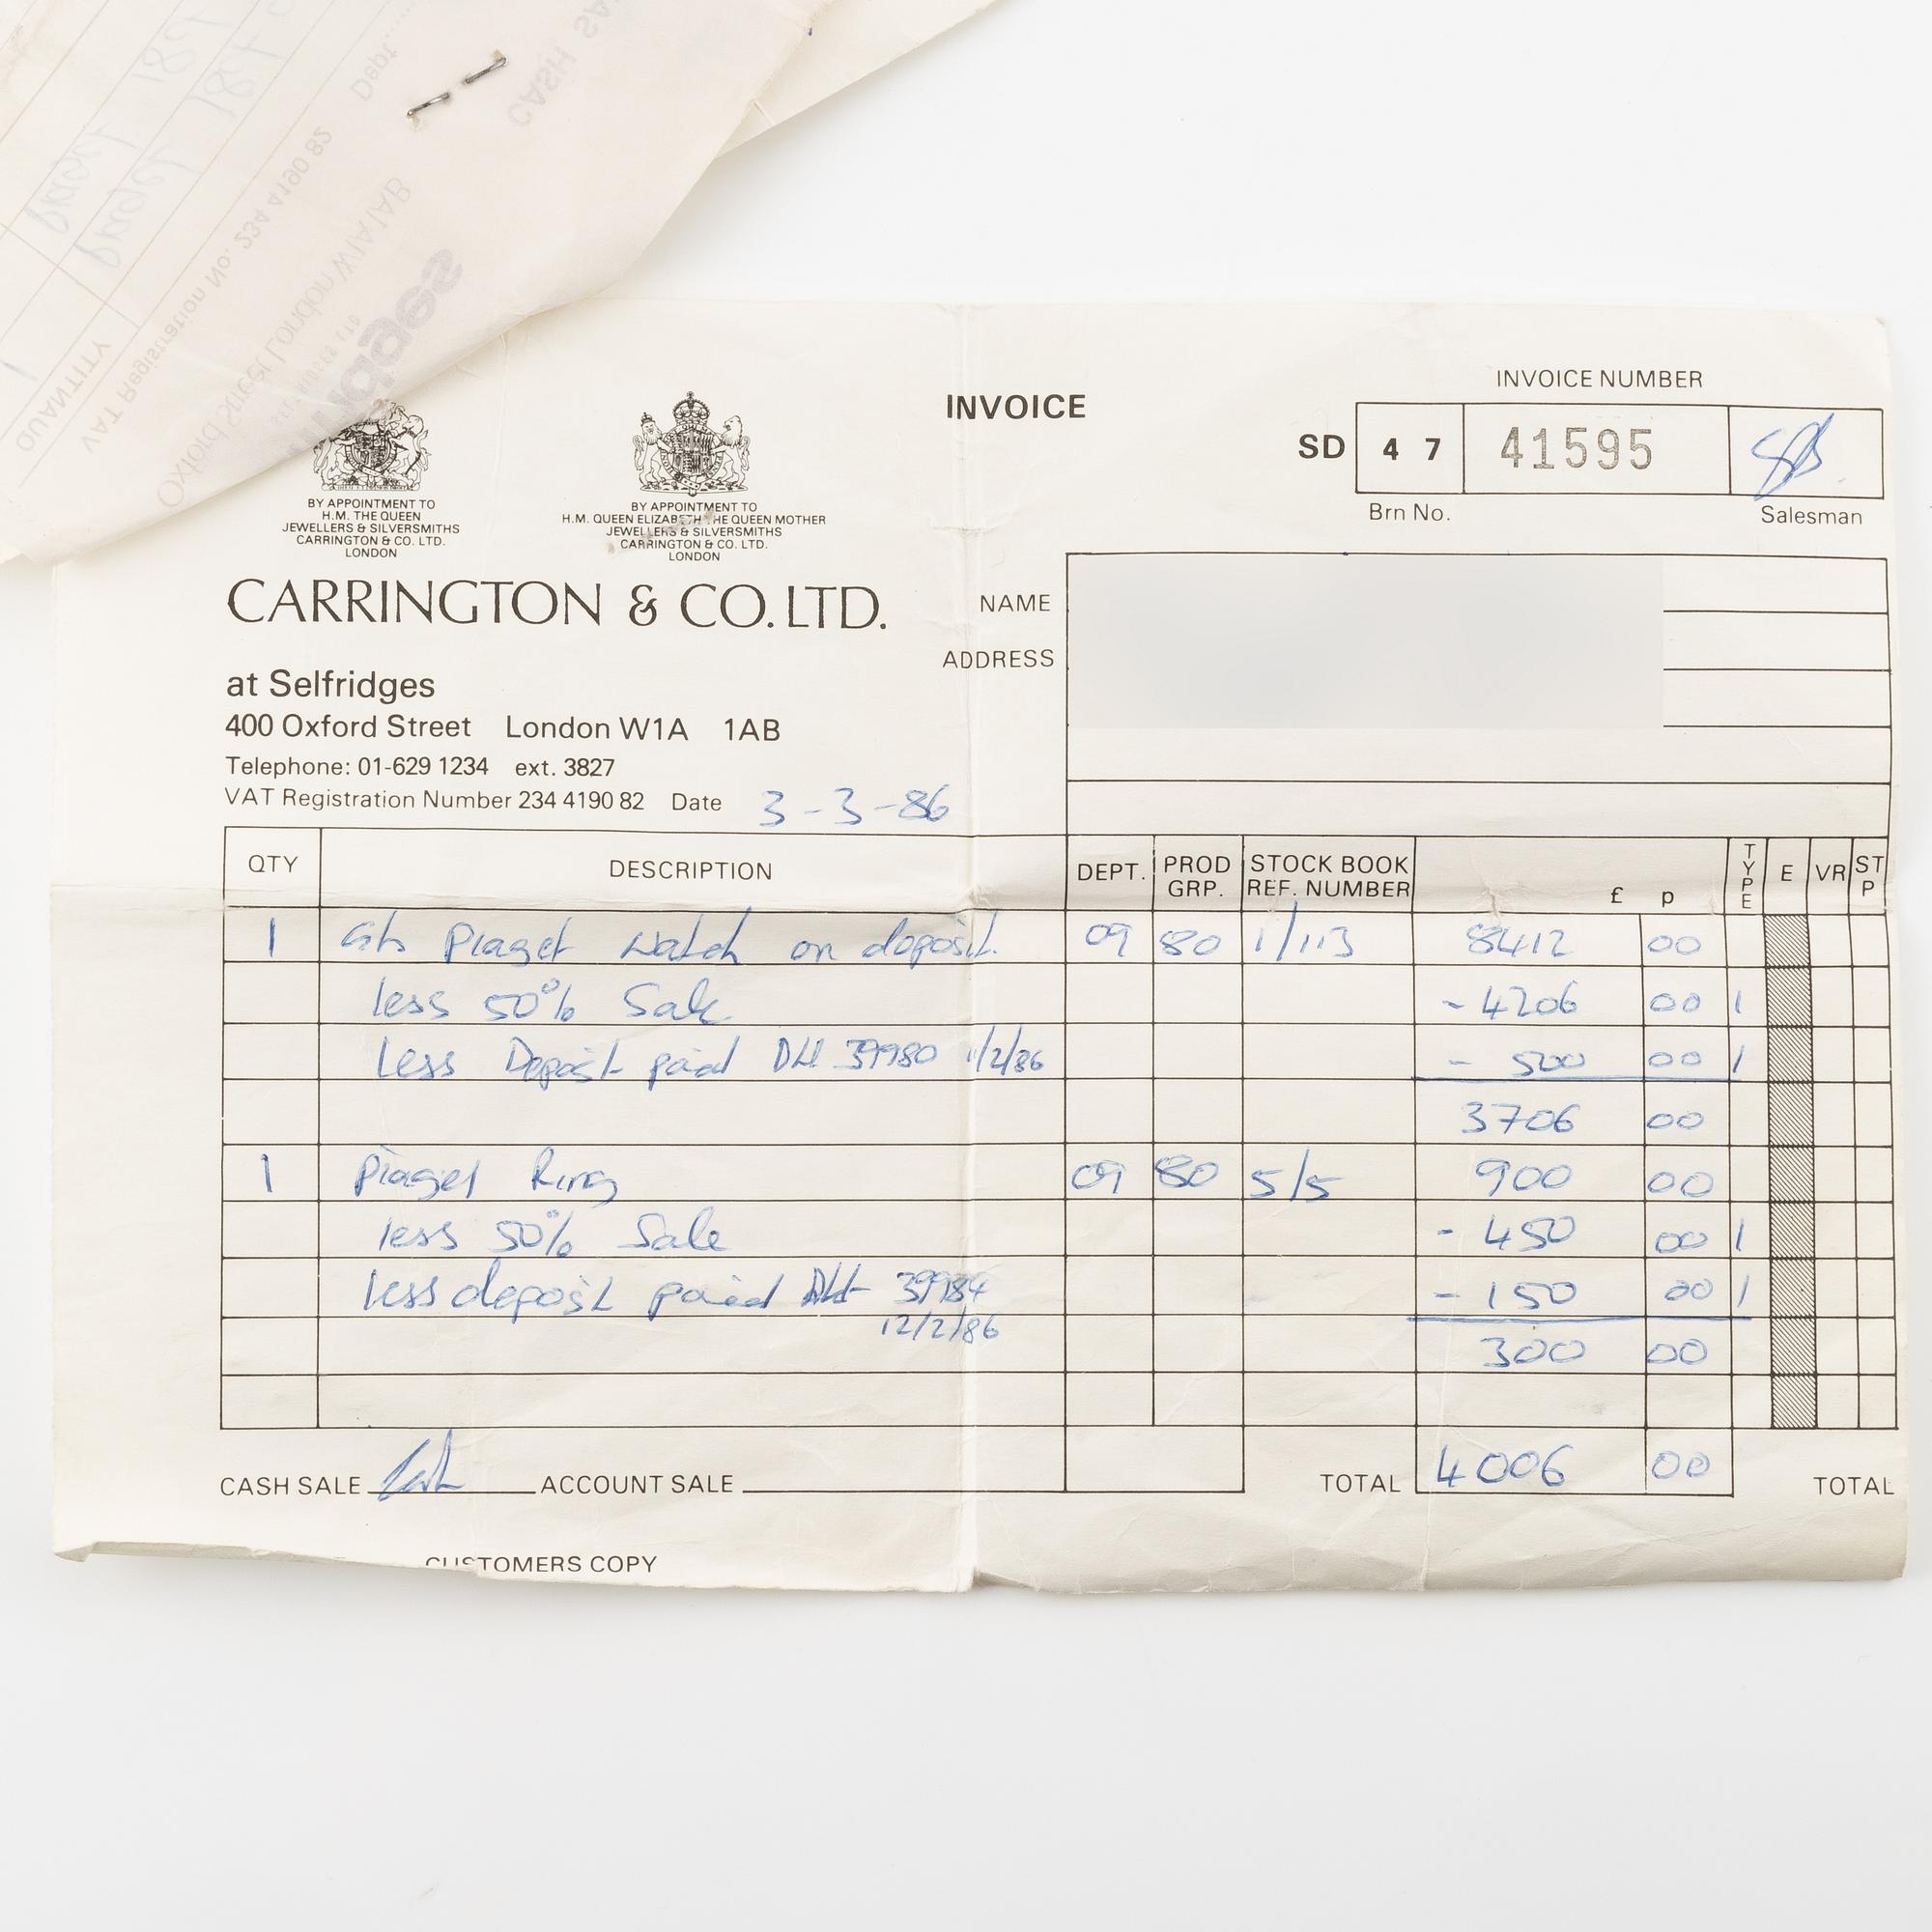 QUANTITY
VAT Registration No. 234 4190 82
Dept.
Oxford Street London W1A 1AB
CASH
INVOICE
INVOICE NUMBER
SD 4 7 41595
Brn No. Salesman
BY APPOINTMENT TO
H.M. THE QUEEN
JEWELLERS & SILVERSMITHS
CARRINGTON & CO. LTD.
LONDON
BY APPOINTMENT TO
H.M. QUEEN ELIZABETH THE QUEEN MOTHER
JEWELLERS & SILVERSMITHS
CARRINGTON & CO. LTD.
LONDON
CARRINGTON & CO. LTD.
at Selfridges
400 Oxford Street London W1A 1AB
Telephone: 01-629 1234 ext. 3827
VAT Registration Number 234 4190 82 Date 3-3-86
NAME
ADDRESS
QTY DESCRIPTION DEPT. PROD GRP. STOCK BOOK REF. NUMBER £ p TYPE E VR ST P
1 Piaget Watch on deposit. 09 80 1/113 8412 00
less 50% Sale - 4206 00 1
Less Deposit paid 39980 11/2/86 - 500 00 1
3706 00
1 Piaget Ring 09 80 5/5 900 00
less 50% Sale - 450 00 1
less deposit paid 39984 - 150 00 1
12/2/86
300 00
CASH SALE ACCOUNT SALE TOTAL 4006 00 TOTAL
CUSTOMERS COPY